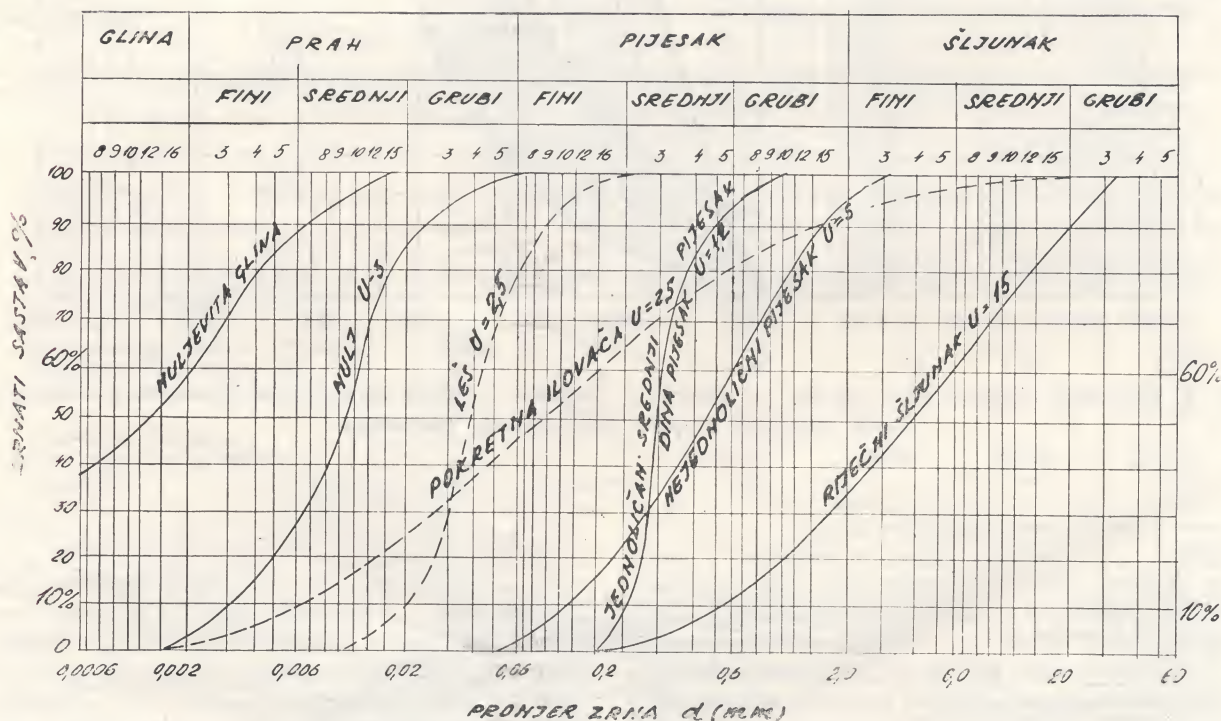 GLINA PRAH PIJESAK ŠLJUNAK
FINI SREDNJI GRUBI FINI SREDNJI GRUBI FINI SREDNJI GRUBI
8 9 10 12 16 3 4 5 8 9 10 12 15 3 4 5 8 9 10 12 16 3 4 5 6 8 9 10 12 15 3 4 5 8 9 10 12 15 3 4 5
100
90
80
70
60%
50
40
30
20
10%
0
SASTAV, %
MULJEVITA GLINA
MULJ U-3
LEŠ U=2,5
POKRETNA ILOVAČA U=25
JEDNOLIČAN SREDNJI PIJESAK
DINA PIJESAK U=1,2
NEJEDNOLIČNI PIJESAK U=5
RIJEČNI ŠLJUNAK U=15
60%
10%
0,0006 0,002 0,006 0,02 0,06 0,2 0,6 2,0 6,0 20 60
PROMJER ZRNA d (mm)